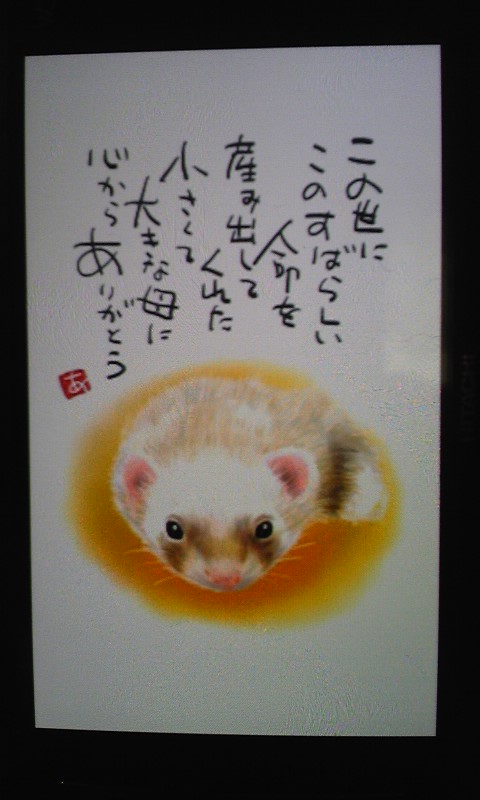 この世に
このすばらしい
命を
産み出して
くれた
小さくて
大きな母に
心から
ありがとう
あ
HITACHI